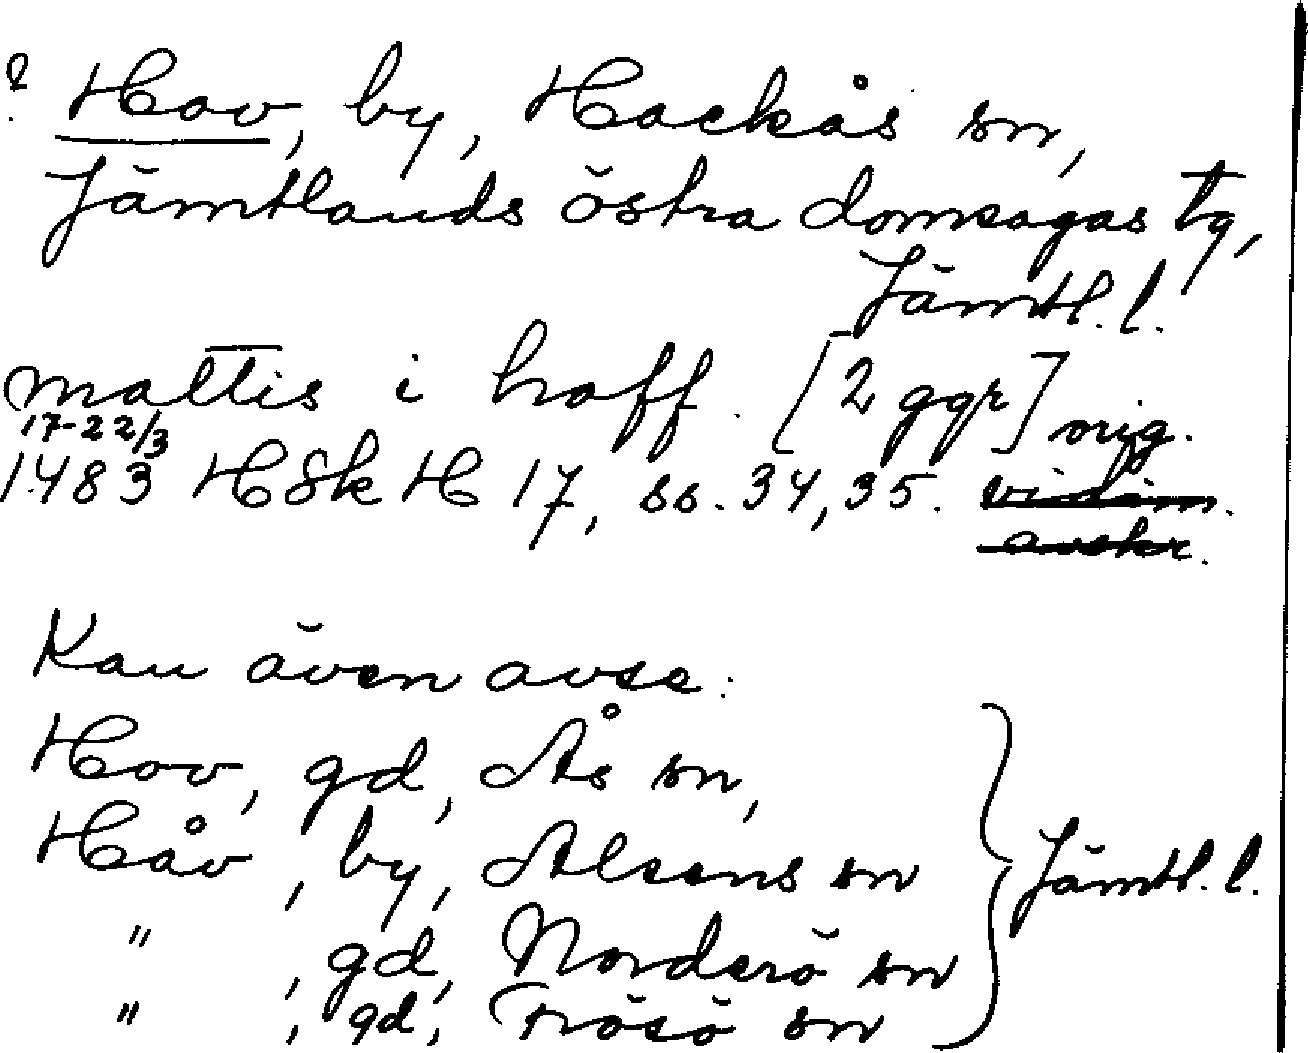 ? Hov, by, Hackås sn,
Jämtlands östra domsagas tg,
Jämtl. l.
mattis i hoff. [2 ggr] orig.
17-22/3
1483 HSkH 17, ss. 34, 35. vidim.
avskr.
Kan även avse:
Hov, gd, Ås sn,
Håv, by, Alsens sn
" , gd, Norderö sn
" , gd, Frösö sn
Jämtl. l.